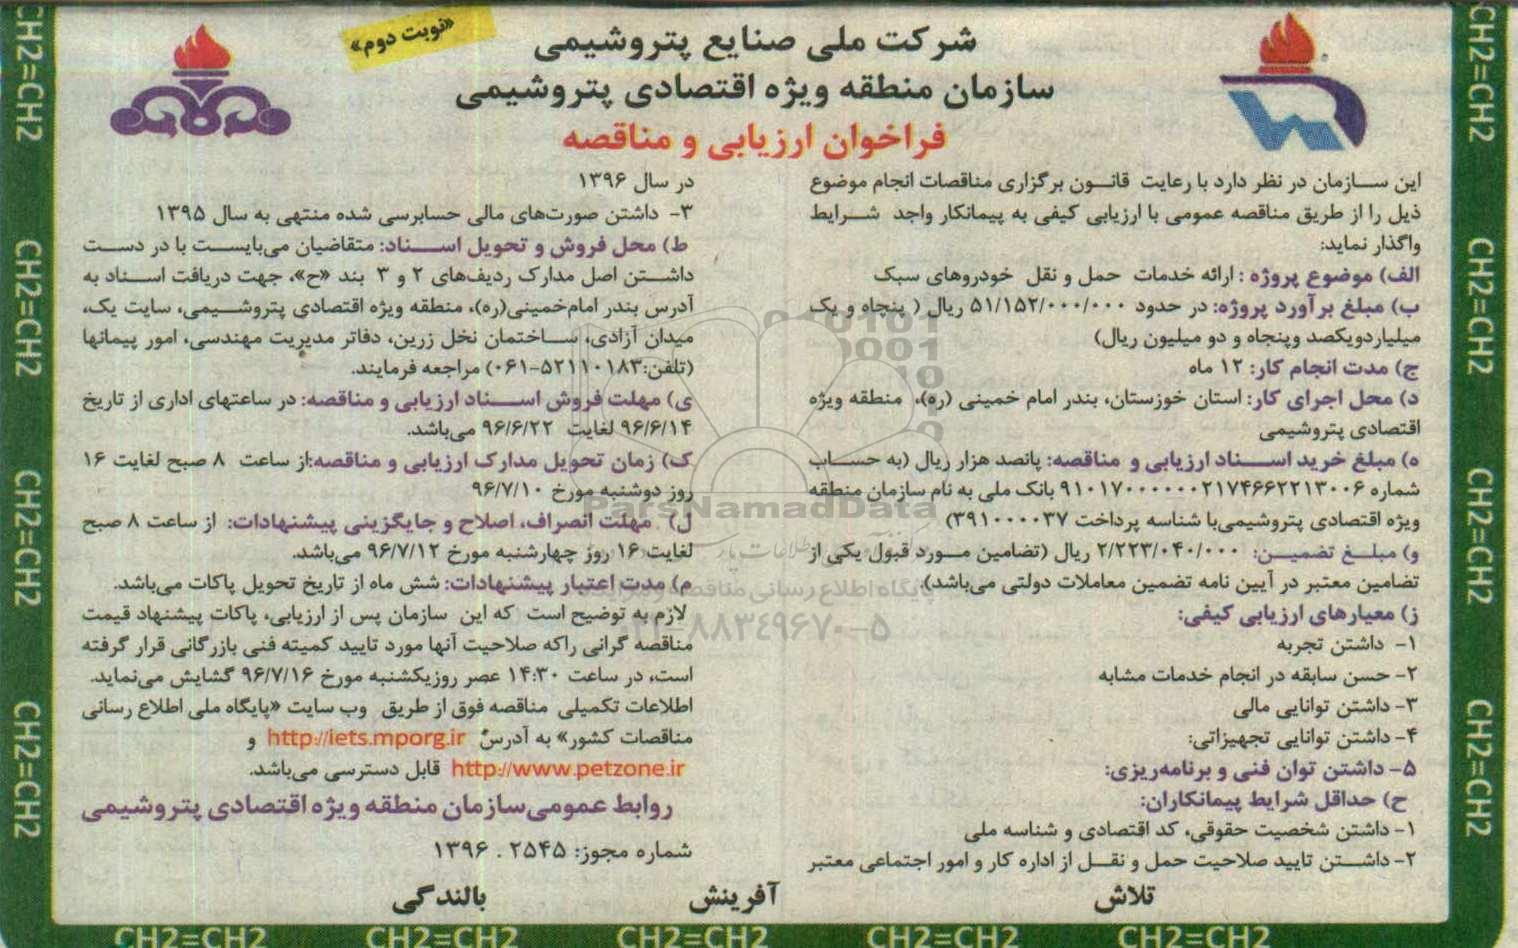 «نوبت دوم»
شرکت ملی صنایع پتروشیمی
سازمان منطقه ویژه اقتصادی پتروشیمی
فراخوان ارزیابی و مناقصه
این سازمان در نظر دارد با رعایت قانون برگزاری مناقصات انجام موضوع
ذیل را از طریق مناقصه عمومی با ارزیابی کیفی به پیمانکار واجد شرایط
واگذار نماید:
الف) موضوع پروژه : ارائه خدمات حمل و نقل خودروهای سبک
ب) مبلغ برآورد پروژه: در حدود ۵۱/۱۵۲/۰۰۰/۰۰۰ ریال ( پنجاه و یک
میلیاردویکصد وپنجاه و دو میلیون ریال)
ج) مدت انجام کار: ۱۲ ماه
د) محل اجرای کار: استان خوزستان، بندر امام خمینی (ره)، منطقه ویژه
اقتصادی پتروشیمی
ه) مبلغ خرید اسناد ارزیابی و مناقصه: پانصد هزار ریال (به حساب
شماره ۹۱۰۱۷۰۰۰۰۰۰۰۲۱۷۴۶۶۲۲۱۳۰۰۶ بانک ملی به نام سازمان منطقه
ویژه اقتصادی پتروشیمی‌با شناسه پرداخت ۳۹۱۰۰۰۰۳۷)
و) مبلغ تضمین: ۲/۲۲۳/۰۴۰/۰۰۰ ریال (تضامین مورد قبول یکی از
تضامین معتبر در آیین نامه تضمین معاملات دولتی می‌باشد)
ز) معیارهای ارزیابی کیفی:
۱- داشتن تجربه
۲- حسن سابقه در انجام خدمات مشابه
۳- داشتن توانایی مالی
۴- داشتن توانایی تجهیزاتی:
۵- داشتن توان فنی و برنامه‌ریزی:
ح) حداقل شرایط پیمانکاران:
۱- داشتن شخصیت حقوقی، کد اقتصادی و شناسه ملی
۲- داشتن تایید صلاحیت حمل و نقل از اداره کار و امور اجتماعی معتبر
در سال ۱۳۹۶
۳- داشتن صورت‌های مالی حسابرسی شده منتهی به سال ۱۳۹۵
ط) محل فروش و تحویل اسناد: متقاضیان می‌بایست با در دست
داشتن اصل مدارک ردیف‌های ۲ و ۳ بند «ح»، جهت دریافت اسناد به
آدرس بندر امام‌خمینی(ره)، منطقه ویژه اقتصادی پتروشیمی، سایت یک،
میدان آزادی، ساختمان نخل زرین، دفاتر مدیریت مهندسی، امور پیمانها
(تلفن:۵۲۱۱۰۱۸۳-۰۶۱) مراجعه فرمایند.
ی) مهلت فروش اسناد ارزیابی و مناقصه: در ساعتهای اداری از تاریخ
۹۶/۶/۱۴ لغایت ۹۶/۶/۲۲ می‌باشد.
ک) زمان تحویل مدارک ارزیابی و مناقصه:از ساعت ۸ صبح لغایت ۱۶
روز دوشنبه مورخ ۹۶/۷/۱۰
ل) مهلت انصراف، اصلاح و جایگزینی پیشنهادات: از ساعت ۸ صبح
لغایت ۱۶ روز چهارشنبه مورخ ۹۶/۷/۱۲ می‌باشد.
م) مدت اعتبار پیشنهادات: شش ماه از تاریخ تحویل پاکات می‌باشد.
لازم به توضیح است که این سازمان پس از ارزیابی، پاکات پیشنهاد قیمت
مناقصه گرانی راکه صلاحیت آنها مورد تایید کمیته فنی بازرگانی قرار گرفته
است، در ساعت ۱۴:۳۰ عصر روزیکشنبه مورخ ۹۶/۷/۱۶ گشایش می‌نماید.
اطلاعات تکمیلی مناقصه فوق از طریق وب سایت «پایگاه ملی اطلاع رسانی
مناقصات کشور» به آدرس http://iets.mporg.ir و
http://www.petzone.ir قابل دسترسی می‌باشد.
روابط عمومی‌سازمان منطقه ویژه اقتصادی پتروشیمی
شماره مجوز: ۲۵۴۵ . ۱۳۹۶
تلاش آفرینش بالندگی
CH2=CH2 CH2=CH2 CH2=CH2 CH2=CH2 CH2=CH2
CH2=CH2
CH2=CH2
CH2=CH2
CH2=CH2
CH2=CH2
CH2=CH2
CH2=CH2
CH2=CH2
ParsNamadData
پایگاه اطلاع رسانی مناقصه و مزایده
۰۲۱-۸۸۳۴۹۶۷۰-۵